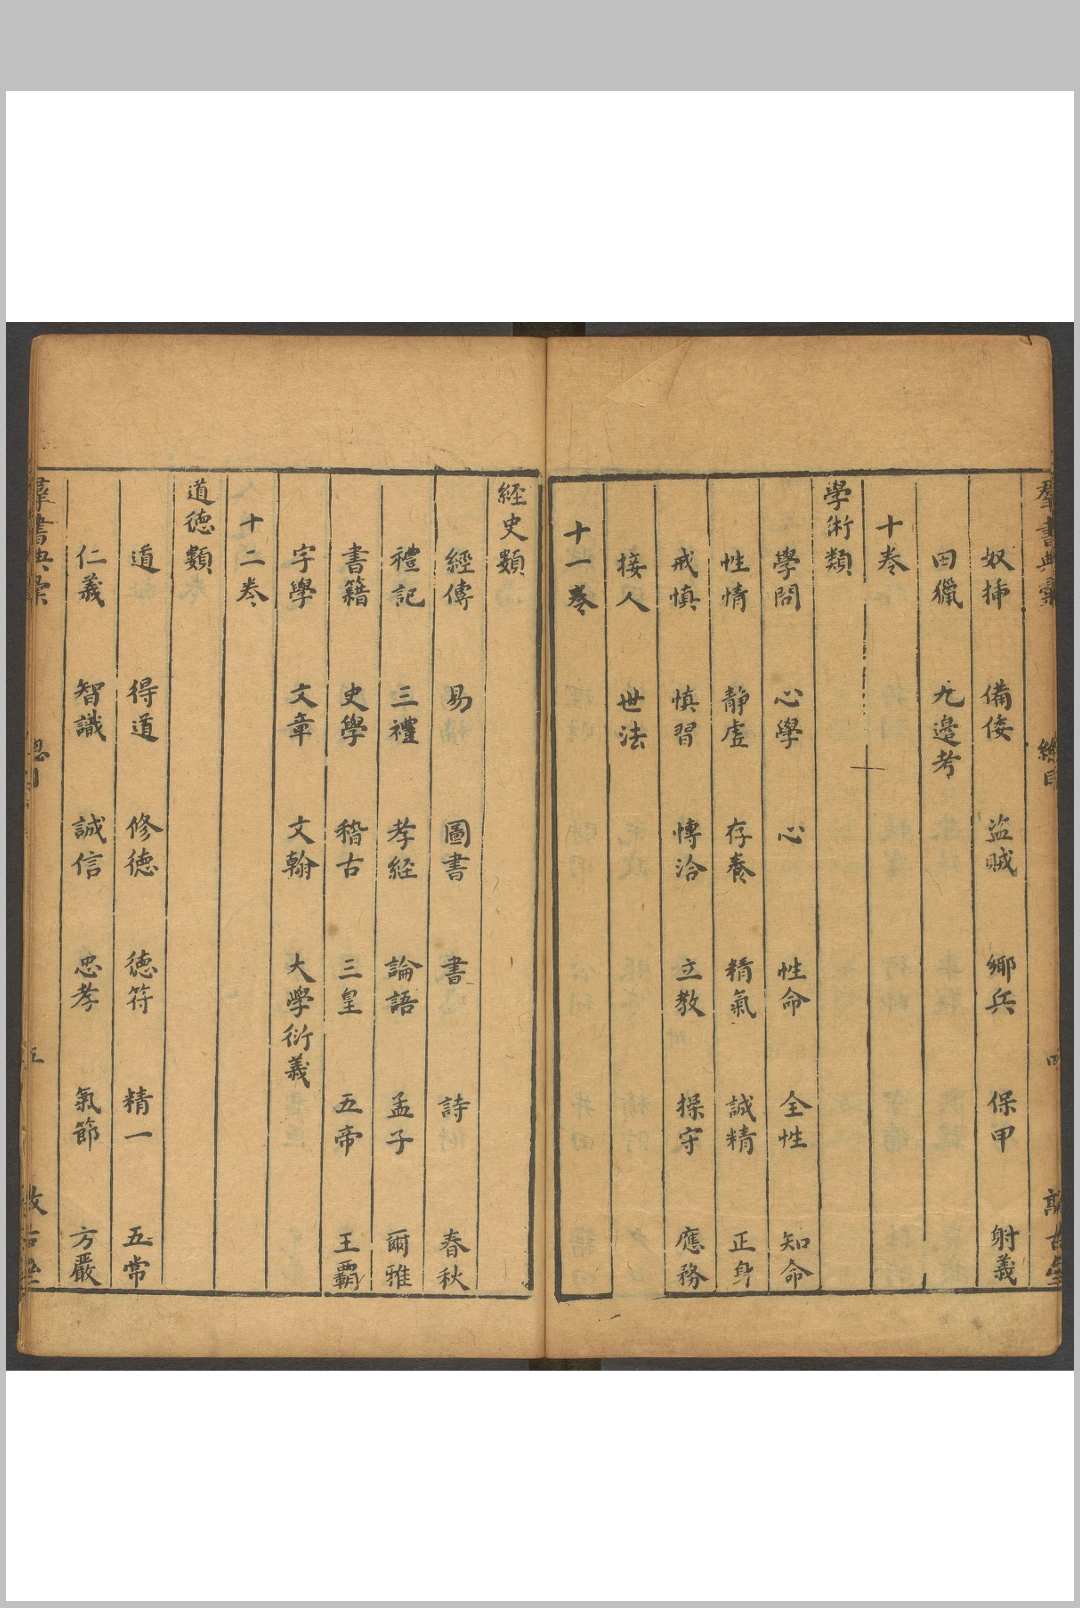 羣書典彙 總目 四
奴掃 備倭 盜賊 鄉兵 保甲 射義
田獵 九邉考
十巻
學術類
學問 心學 心 性命 全性 知命
性情 靜虗 存養 精氣 誠精 正身
戒慎 慎習 愽洽 立教 操守 應務
接人 世法
十一巻
經史類
經傳 易 圖書 書 詩 春秋
禮記 三禮 孝經 論語 孟子 爾雅
書籍 史學 稽古 三皇 五帝 王霸
字學 文章 文翰 大學衍義
十二巻
道德類
道 得道 修德 德符 精一 五常
仁義 智識 誠信 忠孝 氣節 方嚴
羣書典彙 總目 五